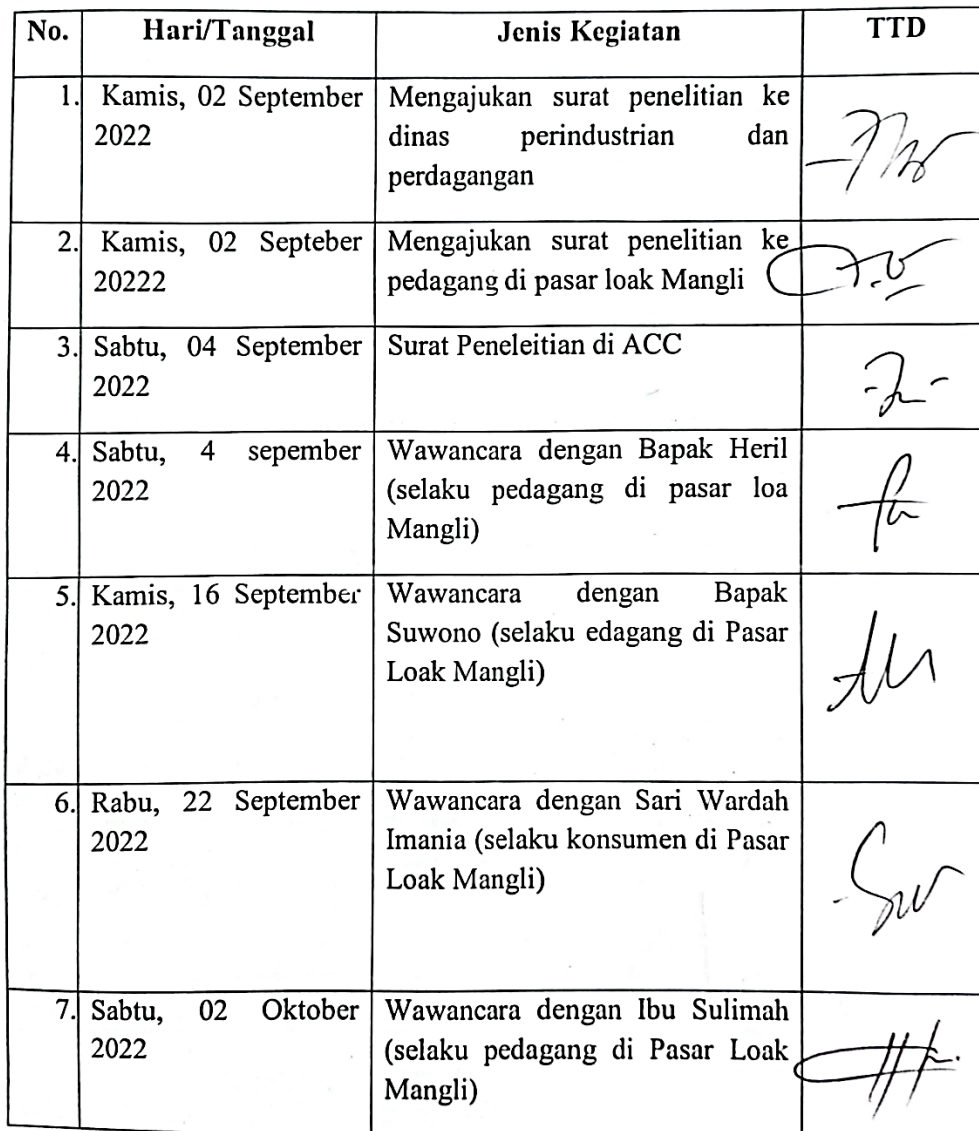 No. Hari/Tanggal Jenis Kegiatan TTD
1. Kamis, 02 September Mengajukan surat penelitian ke
2022 dinas perindustrian dan
perdagangan
2. Kamis, 02 Septeber Mengajukan surat penelitian ke
20222 pedagang di pasar loak Mangli
3. Sabtu, 04 September Surat Peneleitian di ACC
2022
4. Sabtu, 4 sepember Wawancara dengan Bapak Heril
2022 (selaku pedagang di pasar loa
Mangli)
5. Kamis, 16 September Wawancara dengan Bapak
2022 Suwono (selaku edagang di Pasar
Loak Mangli)
6. Rabu, 22 September Wawancara dengan Sari Wardah
2022 Imania (selaku konsumen di Pasar
Loak Mangli)
7. Sabtu, 02 Oktober Wawancara dengan Ibu Sulimah
2022 (selaku pedagang di Pasar Loak
Mangli)